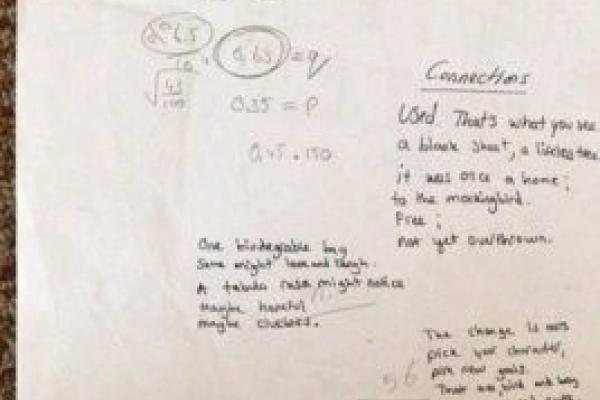 0,65 = q
0,35 = p
0,45 . 150
Connections
Used. That's what you see
a blank sheet, a lifeless tree
it was once a home;
to the mockingbird.
Free;
not yet overthrown.
One biodegable bag
Some might look and laugh.
A tabula rasa might notice
Maybe hopeful
maybe clueless.
The change is ours
pick your character,
pick new goals.
Their tree, bird and bag